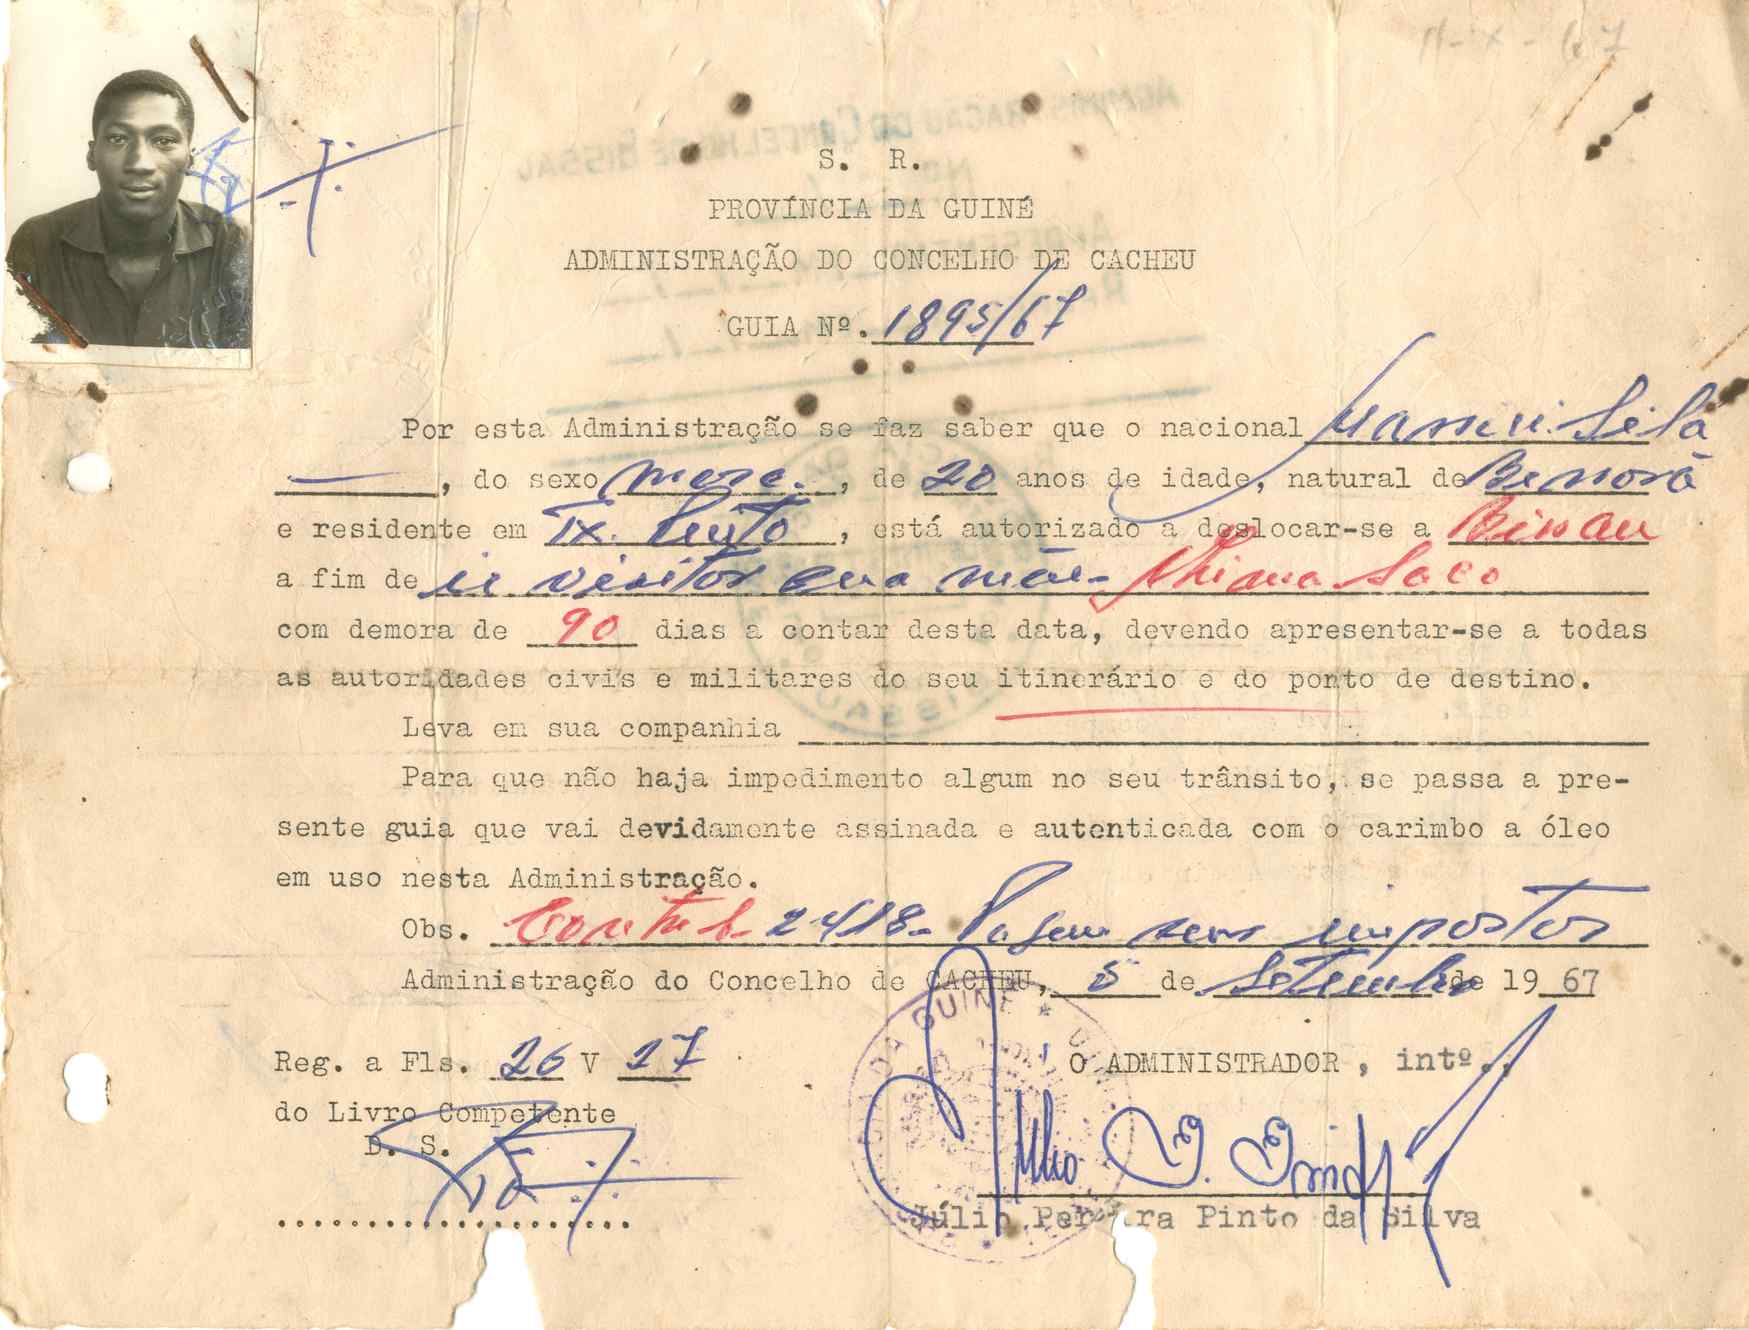 11-X-67
S. R.
PROVÍNCIA DA GUINÉ
ADMINISTRAÇÃO DO CONCELHO DE CACHEU
GUIA Nº. 1895/67
Por esta Administração se faz saber que o nacional
, do sexo masc. , de 20 anos de idade, natural de
e residente em , está autorizado a deslocar-se a Bissau
a fim de ir visitar sua mãe-
com demora de 90 dias a contar desta data, devendo apresentar-se a todas
as autoridades civis e militares do seu itinerário e do ponto de destino.
Leva em sua companhia
Para que não haja impedimento algum no seu trânsito, se passa a pre-
sente guia que vai devidamente assinada e autenticada com o carimbo a óleo
em uso nesta Administração.
Obs. 2418- impostos
Administração do Concelho de CACHEU, 5 de Setembro de 1967
Reg. a Fls. 26 V 27
O ADMINISTRADOR, intº.,
do Livro Competente
D. S.
Júlio Pereira Pinto da Silva
ADMINISTRAÇÃO DO CONCELHO DE BISSAU